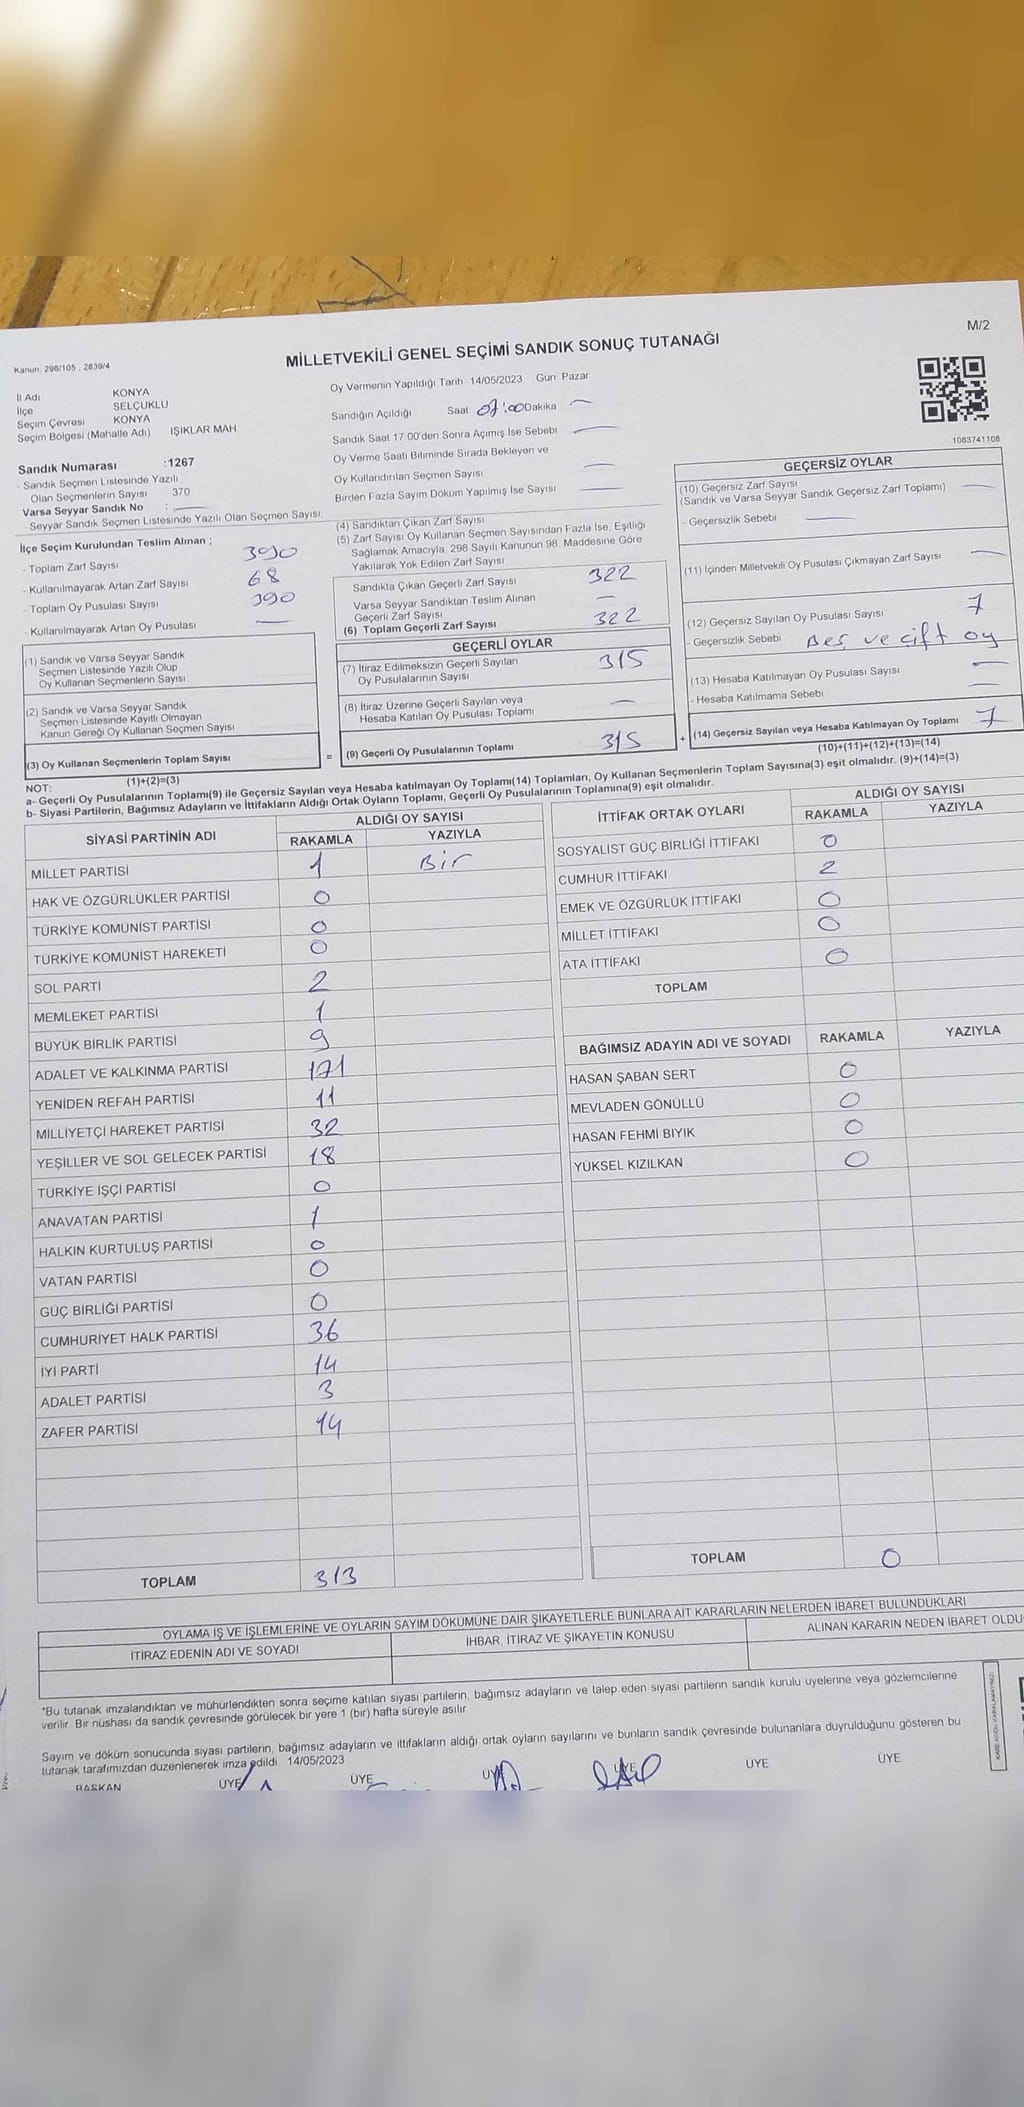 M/2
Kanun, 298/105 , 2839/4
MİLLETVEKİLİ GENEL SEÇİMİ SANDIK SONUÇ TUTANAĞI
İl Adı KONYA
İlçe SELÇUKLU
Seçim Çevresi KONYA
Seçim Bölgesi (Mahalle Adı) IŞIKLAR MAH
Sandık Numarası :1267
- Sandık Seçmen Listesinde Yazılı
Olan Seçmenlerin Sayısı 370
Varsa Seyyar Sandık No : —
- Seyyar Sandık Seçmen Listesinde Yazılı Olan Seçmen Sayısı
İlçe Seçim Kurulundan Teslim Alınan ;
- Toplam Zarf Sayısı 390
- Kullanılmayarak Artan Zarf Sayısı 68
- Toplam Oy Pusulası Sayısı 390
- Kullanılmayarak Artan Oy Pusulası —
(1) Sandık ve Varsa Seyyar Sandık
Seçmen Listesinde Yazılı Olup
Oy Kullanan Seçmenlerin Sayısı
(2) Sandık ve Varsa Seyyar Sandık
Seçmen Listesinde Kayıtlı Olmayan
Kanun Gereği Oy Kullanan Seçmen Sayısı
(3) Oy Kullanan Seçmenlerin Toplam Sayısı =
(1)+(2)=(3)
Oy Vermenin Yapıldığı Tarih 14/05/2023 Gün Pazar
Sandığın Açıldığı Saat 07:00 Dakika —
Sandık Saat 17 00'den Sonra Açımış İse Sebebi —
Oy Verme Saati Bitiminde Sırada Bekleyen ve
Oy Kullandırılan Seçmen Sayısı —
Birden Fazla Sayım Döküm Yapılmış İse Sayısı —
(4) Sandıktan Çıkan Zarf Sayısı
(5) Zarf Sayısı Oy Kullanan Seçmen Sayısından Fazla İse, Eşitliği
Sağlamak Amacıyla, 298 Sayılı Kanunun 98. Maddesine Göre
Yakılarak Yok Edilen Zarf Sayısı
Sandıkta Çıkan Geçerli Zarf Sayısı 322
Varsa Seyyar Sandıktan Teslim Alınan
Geçerli Zarf Sayısı —
(6) Toplam Geçerli Zarf Sayısı 322
GEÇERLİ OYLAR
(7) İtiraz Edilmeksizin Geçerli Sayılan
Oy Pusulalarının Sayısı 315
(8) İtiraz Üzerine Geçerli Sayılan veya
Hesaba Katılan Oy Pusulası Toplamı —
(9) Geçerli Oy Pusulalarının Toplamı 315 +
1083741108
GEÇERSİZ OYLAR
(10) Geçersiz Zarf Sayısı
(Sandık ve Varsa Seyyar Sandık Geçersiz Zarf Toplamı) —
- Geçersizlik Sebebi —
(11) İçinden Milletvekili Oy Pusulası Çıkmayan Zarf Sayısı —
(12) Geçersiz Sayılan Oy Pusulası Sayısı 7
- Geçersizlik Sebebi Beş ve çift oy
(13) Hesaba Katılmayan Oy Pusulası Sayısı —
- Hesaba Katılmama Sebebi —
(14) Geçersiz Sayılan veya Hesaba Katılmayan Oy Toplamı 7
(10)+(11)+(12)+(13)=(14)
NOT:
a- Geçerli Oy Pusulalarının Toplamı(9) ile Geçersiz Sayılan veya Hesaba katılmayan Oy Toplamı(14) Toplamları, Oy Kullanan Seçmenlerin Toplam Sayısına(3) eşit olmalıdır. (9)+(14)=(3)
b- Siyasi Partilerin, Bağımsız Adayların ve İttifakların Aldığı Ortak Oyların Toplamı, Geçerli Oy Pusulalarının Toplamına(9) eşit olmalıdır.
SİYASİ PARTİNİN ADI ALDIĞI OY SAYISI
RAKAMLA YAZIYLA
MİLLET PARTİSİ 1 Bir
HAK VE ÖZGÜRLÜKLER PARTİSİ 0
TÜRKİYE KOMÜNİST PARTİSİ 0
TÜRKİYE KOMÜNİST HAREKETİ 0
SOL PARTİ 2
MEMLEKET PARTİSİ 1
BÜYÜK BİRLİK PARTİSİ 9
ADALET VE KALKINMA PARTİSİ 171
YENİDEN REFAH PARTİSİ 11
MİLLİYETÇİ HAREKET PARTİSİ 32
YEŞİLLER VE SOL GELECEK PARTİSİ 18
TÜRKİYE İŞÇİ PARTİSİ 0
ANAVATAN PARTİSİ 1
HALKIN KURTULUŞ PARTİSİ 0
VATAN PARTİSİ 0
GÜÇ BİRLİĞİ PARTİSİ 0
CUMHURİYET HALK PARTİSİ 36
İYİ PARTİ 14
ADALET PARTİSİ 3
ZAFER PARTİSİ 14
TOPLAM 313
İTTİFAK ORTAK OYLARI ALDIĞI OY SAYISI
RAKAMLA YAZIYLA
SOSYALİST GÜÇ BİRLİĞİ İTTİFAKI 0
CUMHUR İTTİFAKI 2
EMEK VE ÖZGÜRLÜK İTTİFAKI 0
MİLLET İTTİFAKI 0
ATA İTTİFAKI 0
TOPLAM
BAĞIMSIZ ADAYIN ADI VE SOYADI RAKAMLA YAZIYLA
HASAN ŞABAN SERT 0
MEVLADEN GÖNÜLLÜ 0
HASAN FEHMİ BIYIK 0
YÜKSEL KIZILKAN 0
TOPLAM 0
OYLAMA İŞ VE İŞLEMLERİNE VE OYLARIN SAYIM DÖKÜMÜNE DAİR ŞİKAYETLERLE BUNLARA AİT KARARLARIN NELERDEN İBARET BULUNDUKLARI
İTİRAZ EDENİN ADI VE SOYADI İHBAR, İTİRAZ VE ŞİKAYETİN KONUSU ALINAN KARARIN NEDEN İBARET OLDU
*Bu tutanak imzalandıktan ve mühürlendikten sonra seçime katılan siyasi partilerin, bağımsız adayların ve talep eden siyasi partilerin sandık kurulu üyelerine veya gözlemcilerine
verilir Bir nüshası da sandık çevresinde görülecek bir yere 1 (bir) hafta süreyle asılır
Sayım ve döküm sonucunda siyasi partilerin, bağımsız adayların ve ittifakların aldığı ortak oyların sayılarını ve bunların sandık çevresinde bulunanlara duyrulduğunu gösteren bu
tutanak tarafımızdan düzenlenerek imza edildi 14/05/2023
BAŞKAN ÜYE ÜYE ÜYE ÜYE ÜYE ÜYE